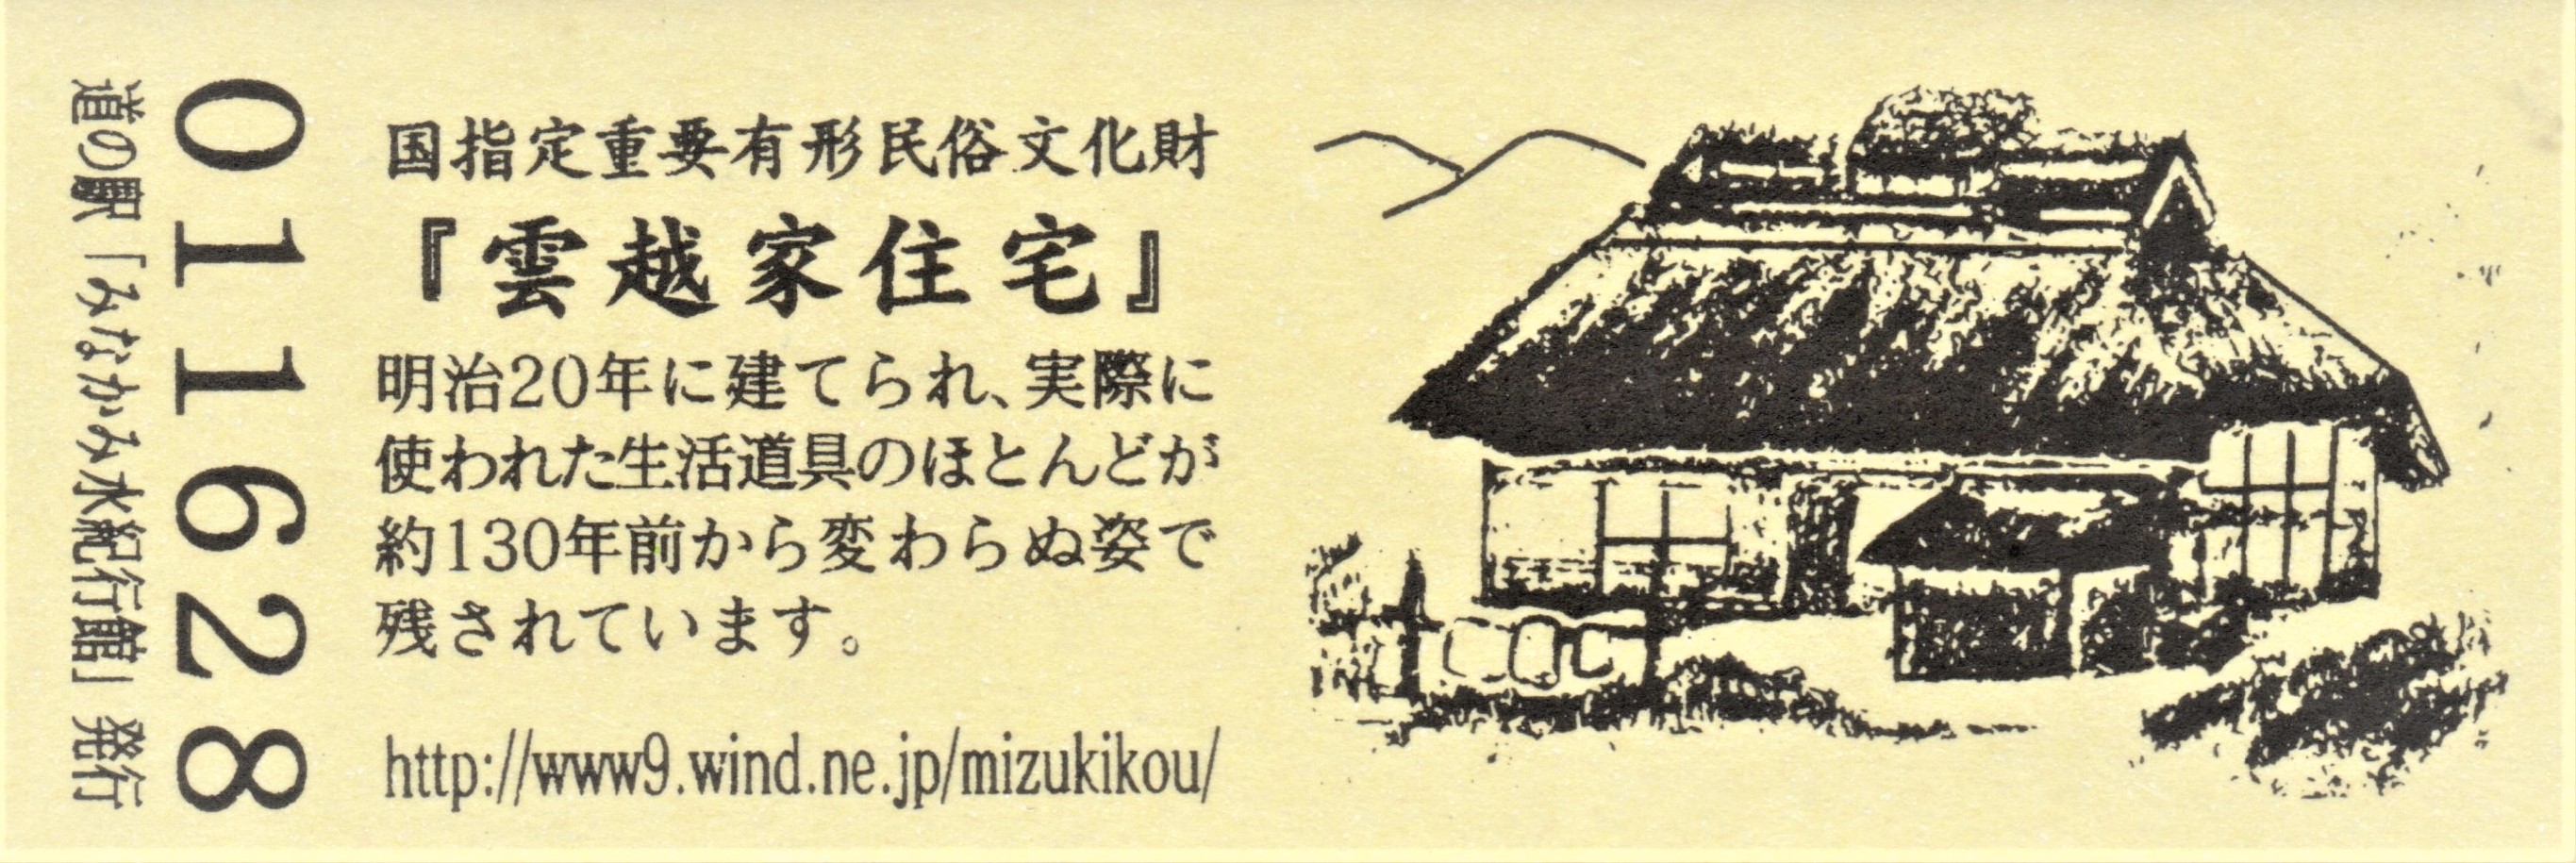 道の駅「みなかみ水紀行館」 発行
011628
国指定重要有形民俗文化財
『雲越家住宅』
明治20年に建てられ、実際に
使われた生活道具のほとんどが
約130年前から変わらぬ姿で
残されています。
http://www9.wind.ne.jp/mizukikou/